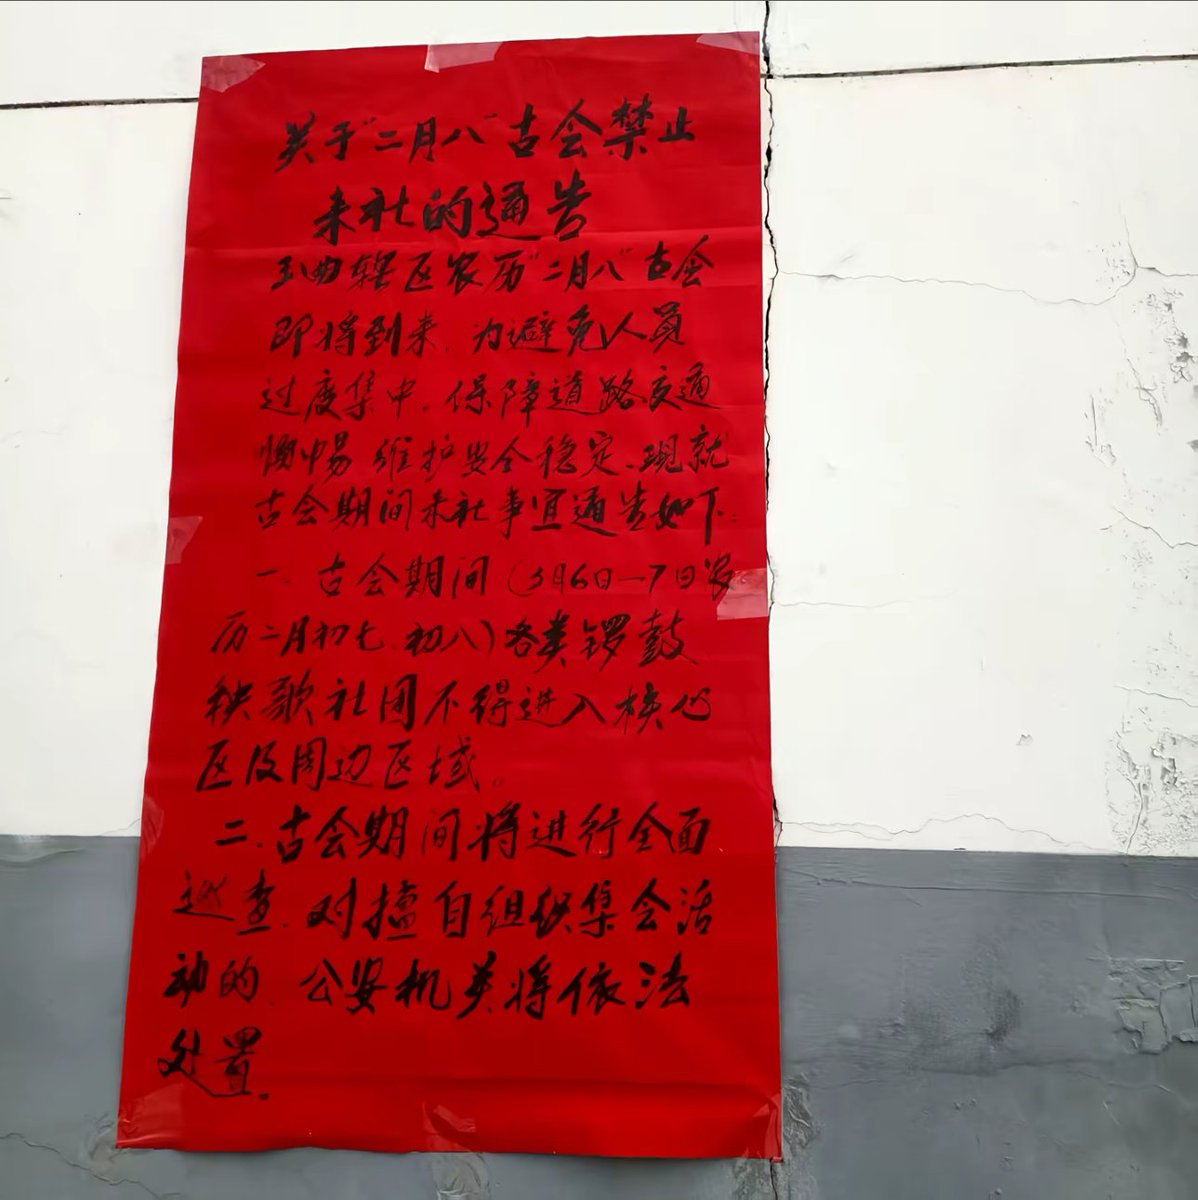 关于“二月八”古会禁止
来社的通告
王曲辖区农历“二月八”古会
即将到来，为避免人员
过度集中，保障道路交通
顺畅 维护安全稳定、现就
古会期间来社事宜通告如下：
一、古会期间（3月6日—7日农
历二月初七、初八）各类锣鼓、
秧歌社团不得进入核心
区及周边区域。
二、古会期间将进行全面
巡查，对擅自组织集会活
动的，公安机关将依法
处置。